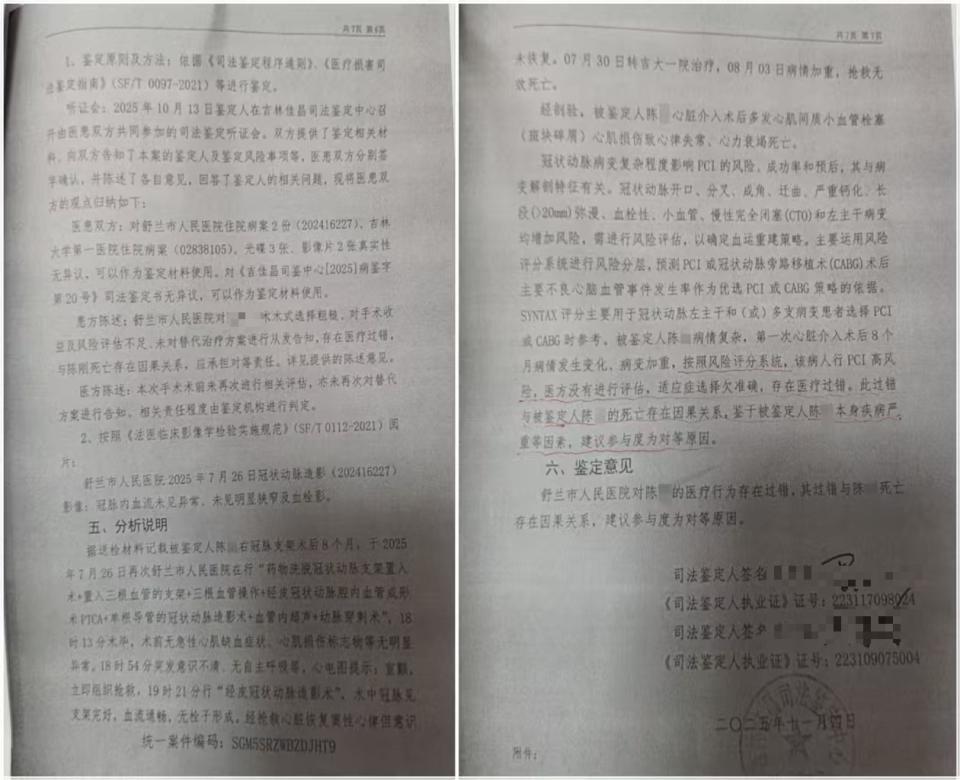 共7页 第6页
1、鉴定原则及方法：依据《司法鉴定程序通则》、《医疗损害司
法鉴定指南》（SF/T 0097-2021）等进行鉴定。
听证会：2025年10月13日鉴定人在吉林佳昌司法鉴定中心召
开由医患双方共同参加的司法鉴定听证会。双方提供了鉴定相关材
料，向双方告知了本案的鉴定人及鉴定风险事项等，医患双方分别签
字确认，并陈述了各自意见，回答了鉴定人的相关问题，现将医患双
方的观点归纳如下：
医患双方：对舒兰市人民医院住院病案2份（202416227）、吉林
大学第一医院住院病案（02838105）、光碟3张、影像片2张真实性
无异议，可以作为鉴定材料使用。对《吉佳昌司鉴中心[2025]病鉴字
第20号》司法鉴定书无异议，可以作为鉴定材料使用。
患方陈述：舒兰市人民医院对 术式选择粗糙，对手术收
益及风险评估不足，未对替代治疗方案进行从发告知，存在医疗过错，
与陈刚死亡存在因果关系，应承担对等责任。详见提供的陈述意见。
医方陈述：本次手术术前未再次进行相关评估，亦未再次对替代
方案进行告知。相关责任程度由鉴定机构进行判定。
2、按照《法医临床影像学检验实施规范》（SF/T 0112-2021）阅
片：
舒兰市人民医院2025年7月26日冠状动脉造影（202416227）
影像：冠脉内血流未见异常、未见明显狭窄及血栓影。
五、分析说明
据送检材料记载被鉴定人陈 右冠脉支架术后8个月，于2025
年7月26日再次舒兰市人民医院在行“药物洗脱冠状动脉支架置入
术+置入三根血管的支架+三根血管操作+经皮冠状动脉腔内血管成形
术PTCA+单根导管的冠状动脉造影术+血管内超声+动脉穿刺术”，18
时13分术毕，术前无急性心肌缺血症状、心肌损伤标志物等无明显
异常。18时54分突发意识不清、无自主呼吸等，心电图提示：室颤，
立即组织抢救，19时21分行“经皮冠状动脉造影术”，术中冠脉见
支架完好，血流通畅，无栓子形成，经抢救心脏恢复窦性心律但意识
统一案件编码：SGM5SRZWBZDJHT9
共7页 第7页
未恢复。07月30日转吉大一院治疗，08月03日病情加重，抢救无
效死亡。
经剖验，被鉴定人陈 心脏介入术后多发心肌间质小血管栓塞
（斑块碎屑）心肌损伤致心律失常、心力衰竭死亡。
冠状动脉病变复杂程度影响PCI的风险、成功率和预后，其与病
变解剖特征有关。冠状动脉开口、分叉、成角、迂曲、严重钙化、长
段(>20mm)弥漫、血栓性、小血管、慢性完全闭塞(CTO)和左主干病变
均增加风险，需进行风险评估，以确定血运重建策略。主要运用风险
评分系统进行风险分层，预测PCI或冠状动脉旁路移植术(CABG)术后
主要不良心脑血管事件发生率作为优选PCI或CABG策略的依据。
SYNTAX评分主要用于冠状动脉左主干和（或）多支病变患者选择PCI
或CABG时参考。被鉴定人陈 病情复杂，第一次心脏介入术后8个
月病情发生变化、病变加重，按照风险评分系统，该病人行PCI高风
险，医方没有进行评估，适应症选择欠准确，存在医疗过错。此过错
与被鉴定人陈 的死亡存在因果关系，鉴于被鉴定人陈 本身疾病严
重等因素，建议参与度为对等原因。
六、鉴定意见
舒兰市人民医院对陈 的医疗行为存在过错，其过错与陈 死亡
存在因果关系，建议参与度为对等原因。
司法鉴定人签名
《司法鉴定人执业证》证号：223117098024
司法鉴定人签名
《司法鉴定人执业证》证号：223109075004
二〇二五年十一月四日
附件：